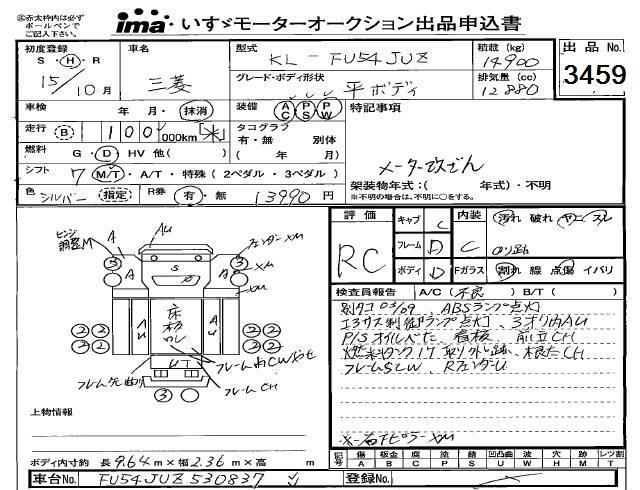 ㊟赤太枠内は必ず
ボールペンで
ご記入下さい。
ima・いすゞモーターオークション出品申込書
初度登録
S・H・R
15/10月
車名
三菱
型式
KL-FU54JUZ
グレード・ボディ形状
平ボディ
積載 (kg)
14900
排気量 (cc)
12880
出品No.
3459
車検 年 月・抹消
装備 AC PS PW
特記事項
走行 B 1100,000km ※
タコグラフ
有・無 別体
( 年 月)
燃料 G・D・HV 他( )
メーター改ざん
シフト 7 M/T・A/T・特殊 (2ペダル・3ペダル)
架装物年式:( 年式)・不明
※不明の場合は、不明に○をする。
色 シルバー 指定 R券 有・無 13990円
評価
RC
キャブ C
フレーム D
ボディ D
内装 C
汚れ 破れ ヤニ スレ
Fガラス 割れ 線 点傷 イバリ
検査員報告 A/C(不良) B/T( )
別タコ 03/09 ABSランプ点灯
エアサス制御ランプ点灯、3オリ内AU
P/Sオイルべた、看板、前立CH
燃料タンク1ケ取り外し跡、根太CH
フレームSLW、RフェンダーU
※右FピラーXM
ヒンジ
調整M
A
AU
フェンダーXM
XM
XM
A
A
S
P
3
3
2
2
2
2
AU
AU
床板
ワレ
UT
フレーム内CWよせ
フレームCH
フレーム先曲り
3
上物情報
ボディ内寸約 長9.64m×幅2.36m×高 m
記号 傷A 板金B 腐C 塗P 錆S 凹凸曲U 波W 穴H 跡M レツ割T
車台No. FU54JUZ530837
登録No.